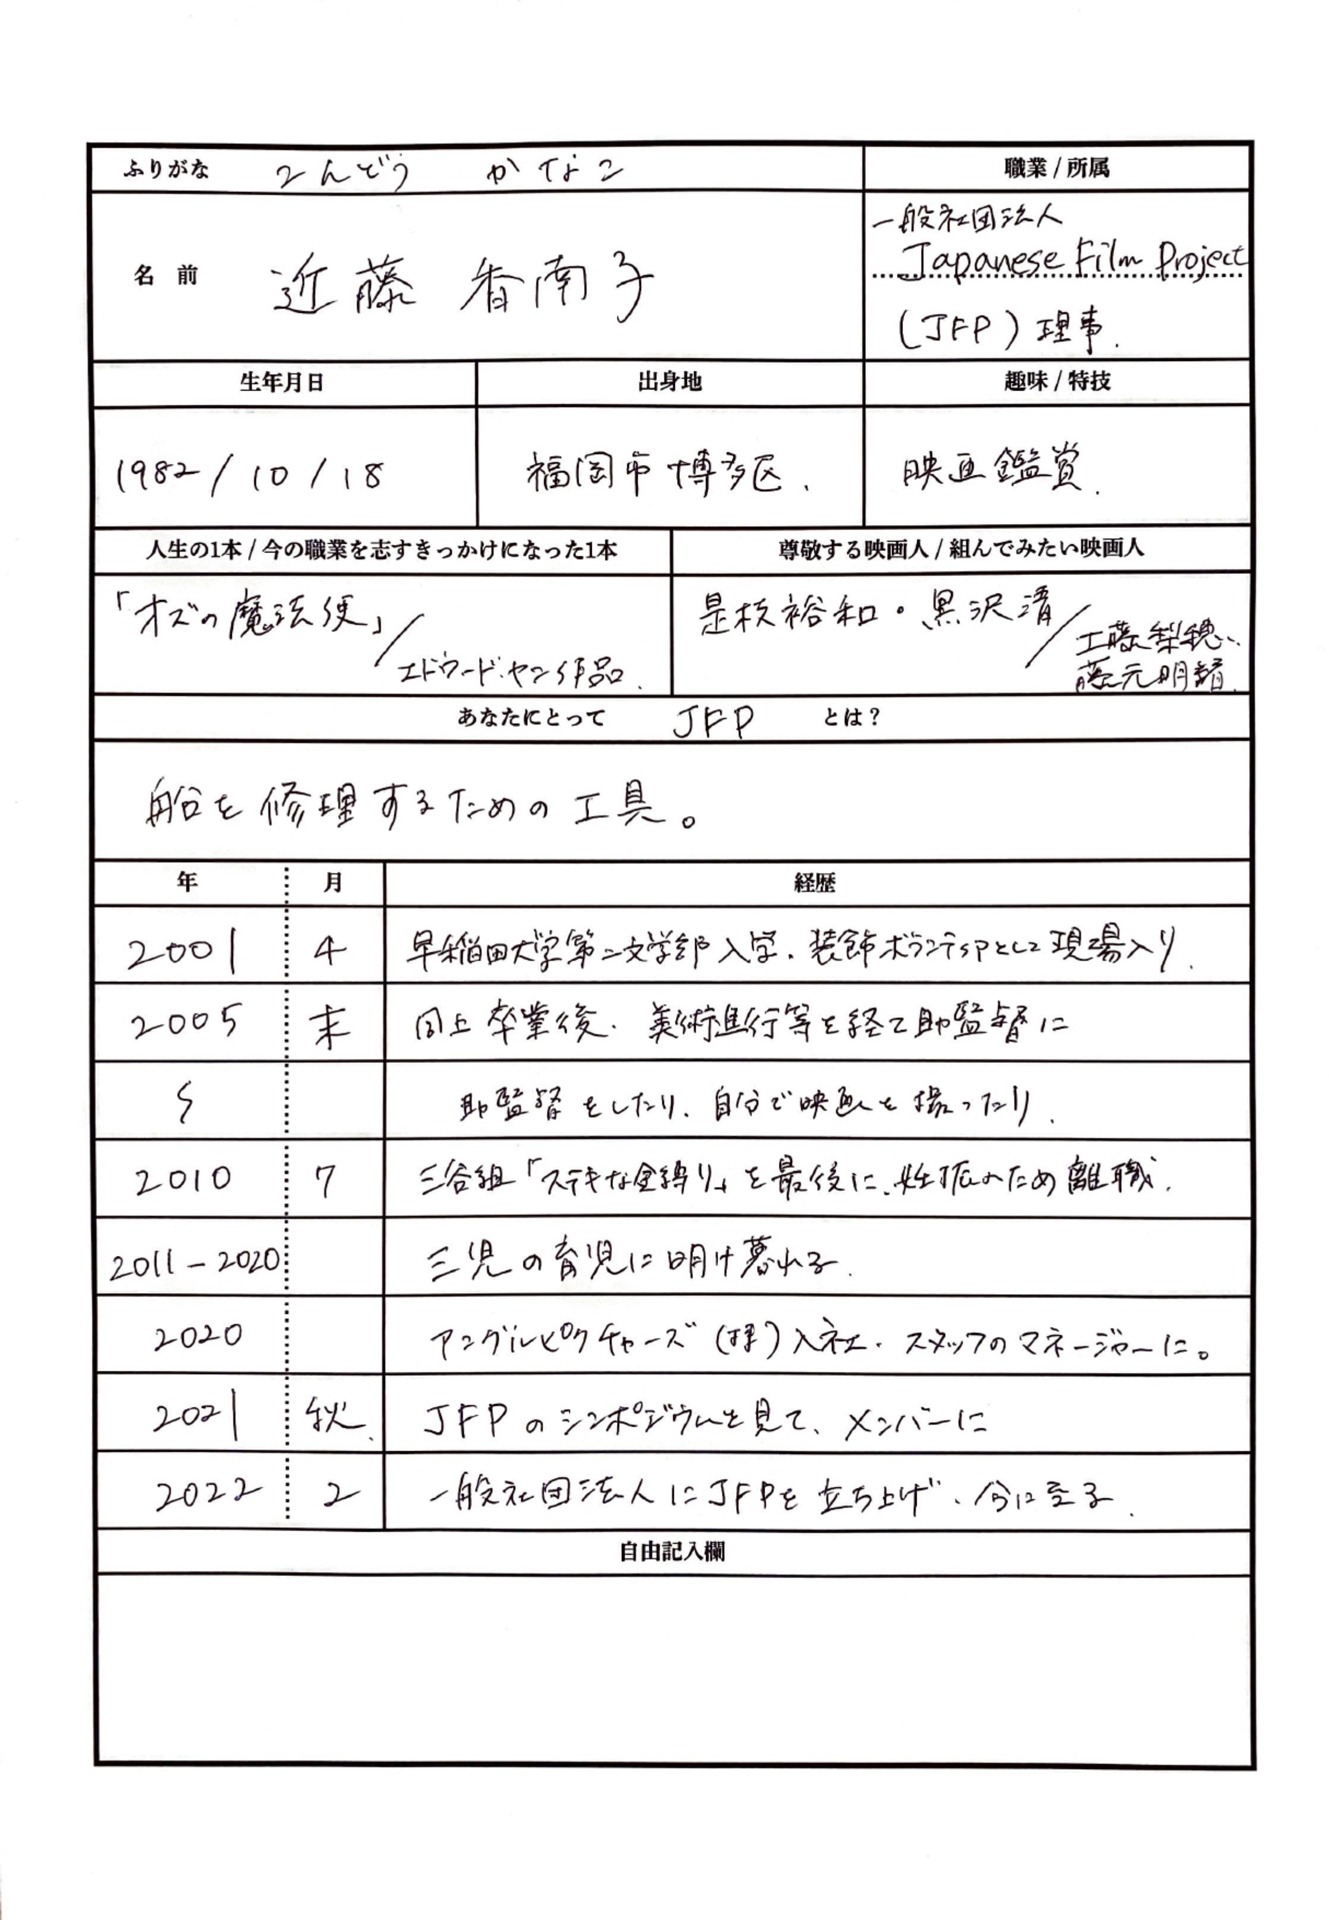 ふりがな こんどう かなこ
職業 / 所属
名 前 近藤 香南子
一般社団法人
Japanese Film Project
(JFP) 理事.
生年月日 出身地 趣味 / 特技
1982 / 10 / 18 福岡市博多区. 映画鑑賞.
人生の1本 / 今の職業を志すきっかけになった1本 尊敬する映画人 / 組んでみたい映画人
「オズの魔法使」/
エドワード・ヤン作品.
是枝裕和・黒沢清/
工藤梨穂、
藤元明緒.
あなたにとって JFP とは?
船を修理するための工具。
年 月 経歴
2001 4 早稲田大学第二文学部入学. 装飾ボランティアとして現場入り.
2005 末 同上卒業後. 美術進行等を経て助監督に
〜 助監督をしたり、自分で映画を撮ったり.
2010 7 三谷組「ステキな金縛り」を最後に、妊娠のため離職.
2011 - 2020 三児の育児に明け暮れる.
2020 アングルピクチャーズ(株)入社. スタッフのマネージャーに。
2021 秋. JFPのシンポジウムを見て、メンバーに
2022 2 一般社団法人にJFPを立ち上げ、今に至る.
自由記入欄